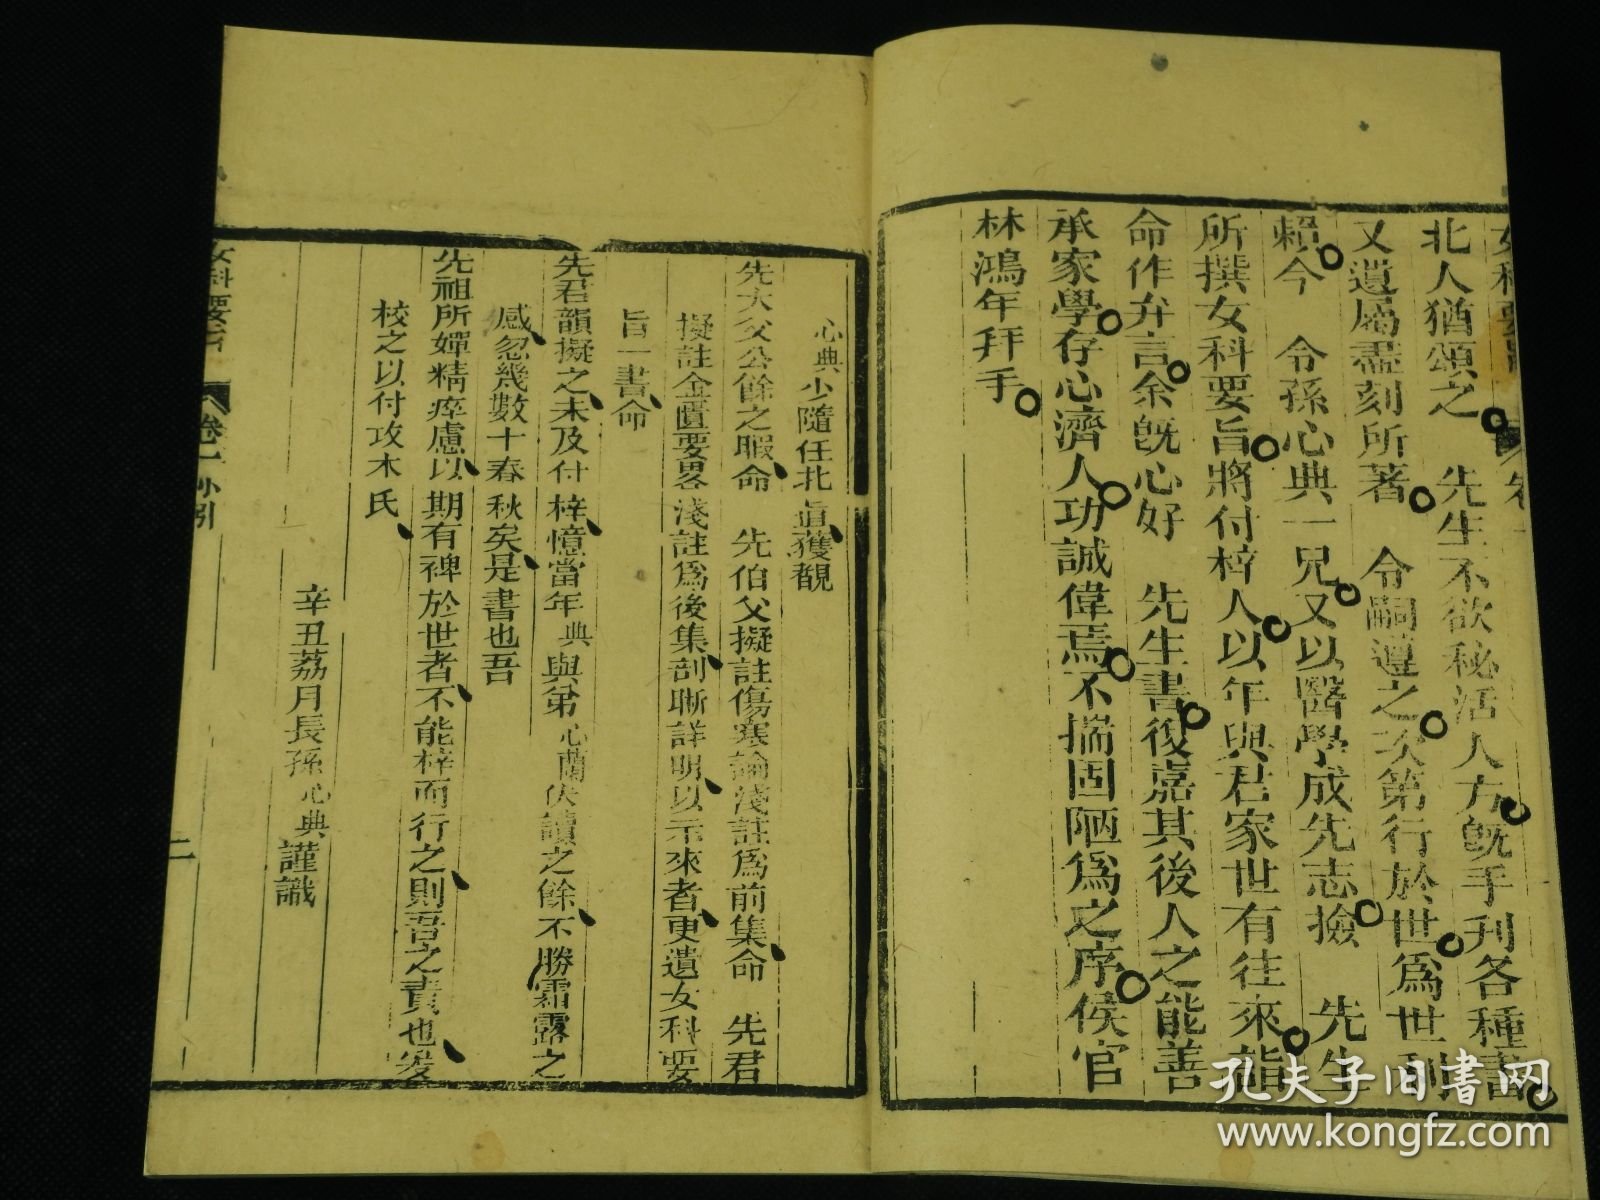 女科要旨 卷一
北人猶頌之 先生不欲秘活人方旣手刊各種書
又遺屬盡刻所著 令嗣遵之次第行於世爲世利
賴今 令孫心典一兄又以醫學成先志撿 先生
所撰女科要旨將付梓人以年與君家世有往來詣
命作弁言余旣心好 先生書復嘉其後人之能善
承家學存心濟人功誠偉焉不揣固陋爲之序侯官
林鴻年拜手
心典少隨任北直獲覩
先大父公餘之暇命 先伯父擬註傷寒論淺註爲前集命 先君
擬註金匱要畧淺註爲後集剖晰詳明以示來者更遺女科要
旨一書命
先君韻擬之未及付梓憶當年典與弟心蘭伏讀之餘不勝霜露之
感忽幾數十春秋矣是書也吾
先祖所殫精瘁慮以期有裨於世者不能梓而行之則吾之責也爰
校之以付攻木氏
辛丑荔月長孫心典謹識
女科要旨 卷一 小引 二
孔夫子旧书网
www.kongfz.com